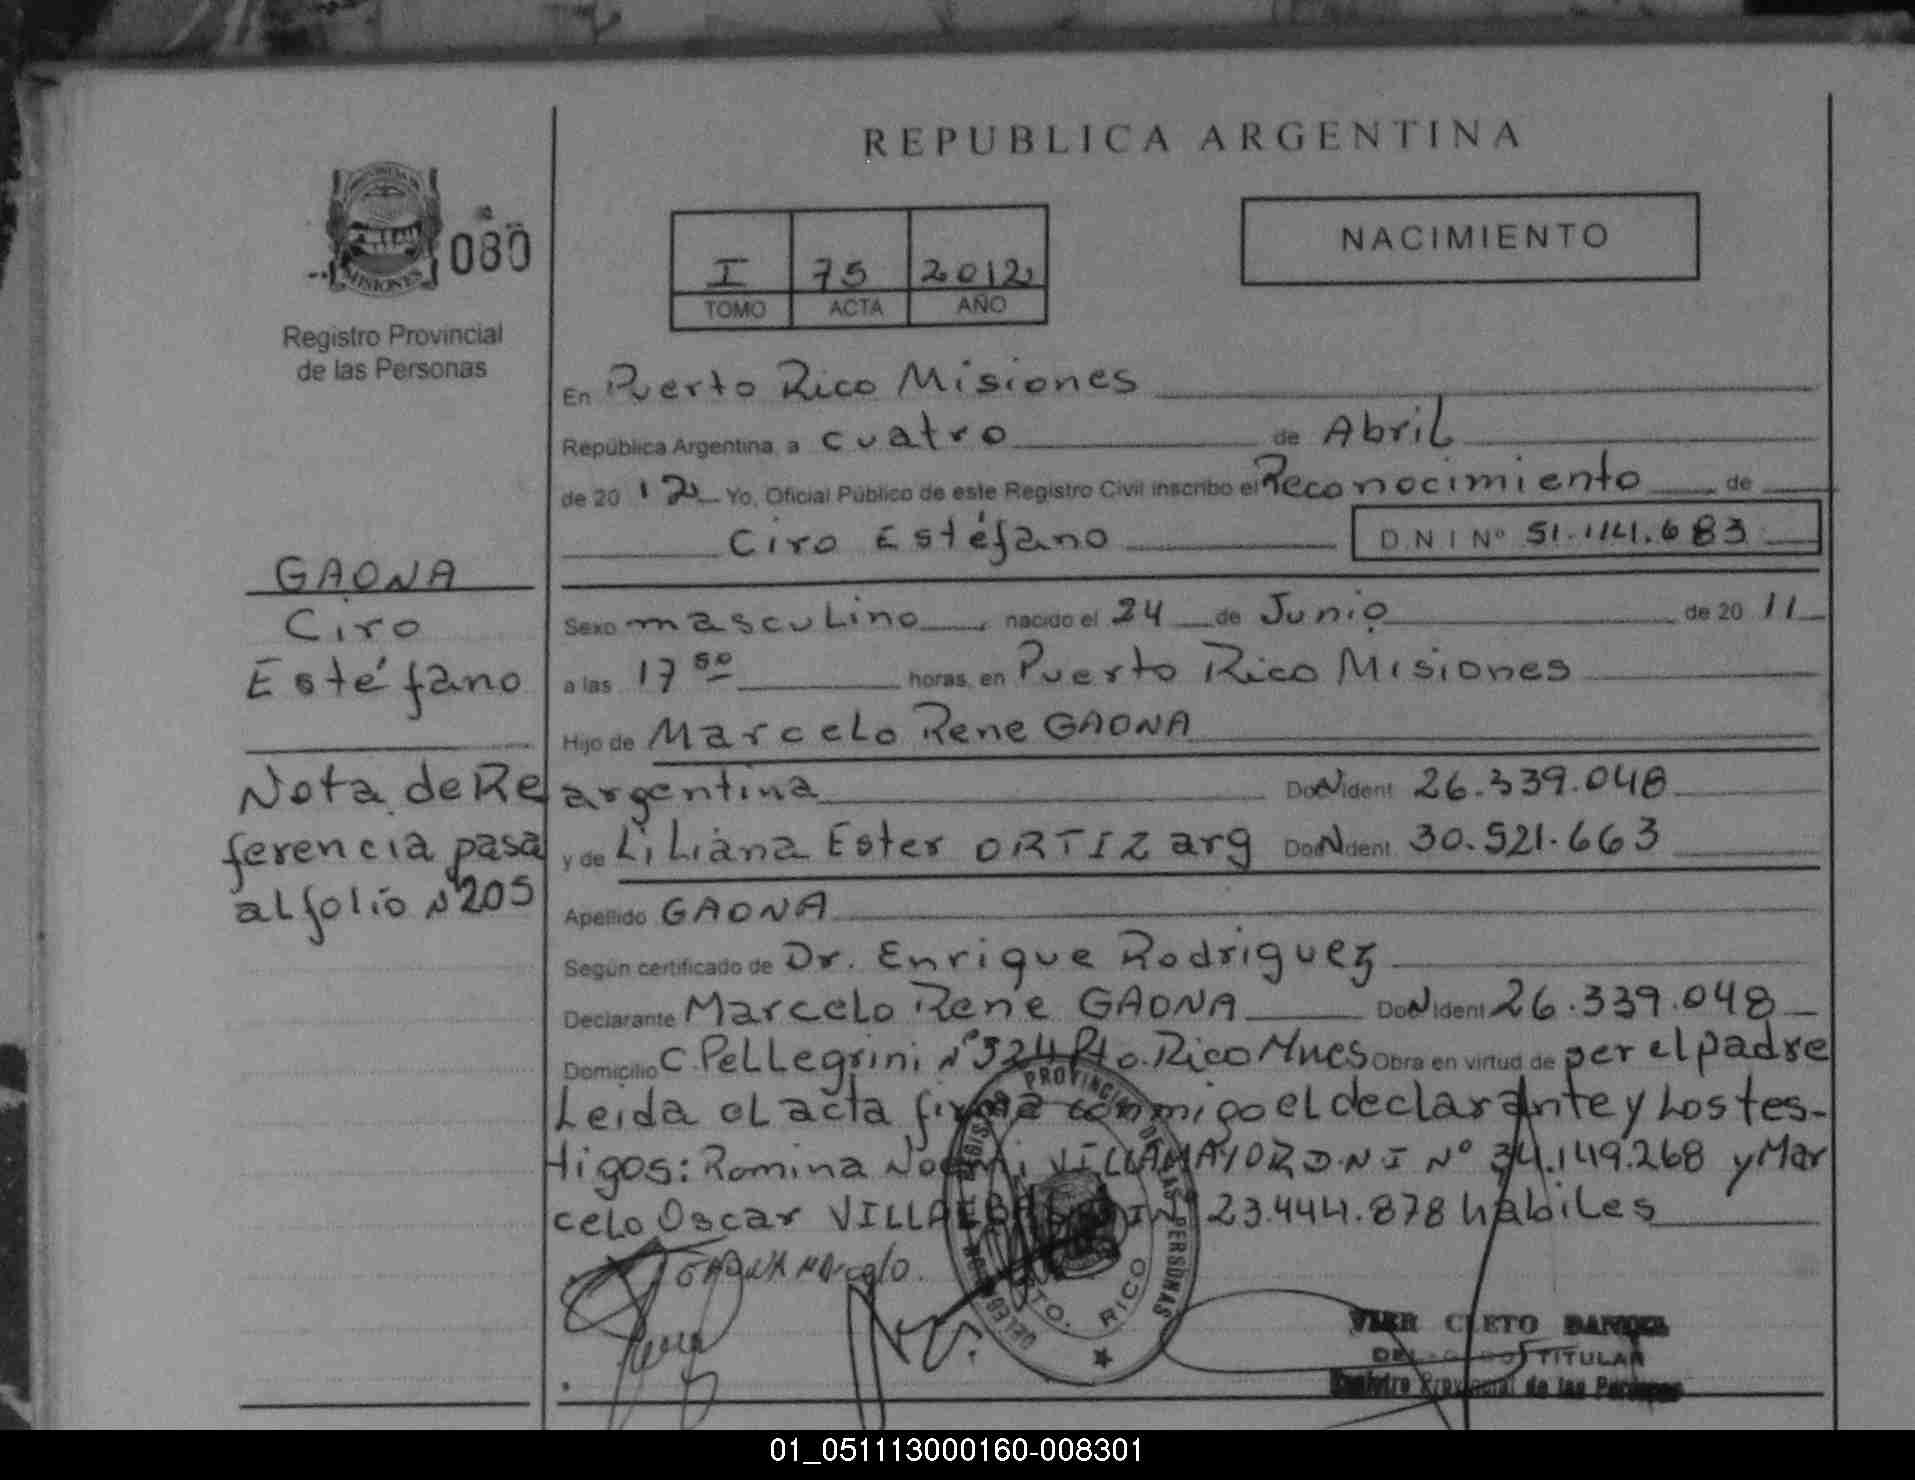 REPUBLICA ARGENTINA
NACIMIENTO
MISIONES
080
Registro Provincial
de las Personas
I 75 2012
TOMO ACTA AÑO
En Puerto Rico Misiones
República Argentina, a cuatro de Abril
de 20 12 Yo, Oficial Público de este Registro Civil inscribo el Reconocimiento de
Ciro Estéfano D.N.I Nº 51.114.683
GAONA
Ciro
Estéfano
Sexo masculino, nacido el 24 de Junio de 20 11
a las 17 50 horas, en Puerto Rico Misiones
Hijo de Marcelo Rene GAONA
argentina Doc N Ident 26.339.048
y de Liliana Ester ORTIZ arg Doc N Ident 30.521.663
Nota de Re
ferencia pasa
al folio N°205
Apellido GAONA
Según certificado de Dr. Enrique Rodriguez
Declarante Marcelo Rene GAONA Doc N Ident 26.339.048
Domicilio C. Pellegrini N°524 Pto. Rico Mnes Obra en virtud de ser el padre
Leida el acta firma conmigo el declarante y los tes-
tigos: Romina Noemi VILLAMAYOR D.N.I Nº 34.149.268 y Mar
celo Oscar 23.444.878 habiles
GAONA Marcelo.
PROVINCIAL DE LAS PERSONAS
PTO. RICO
CLETO DANIEL
TITULAR
Registro Provincial de las Personas
01_051113000160-008301